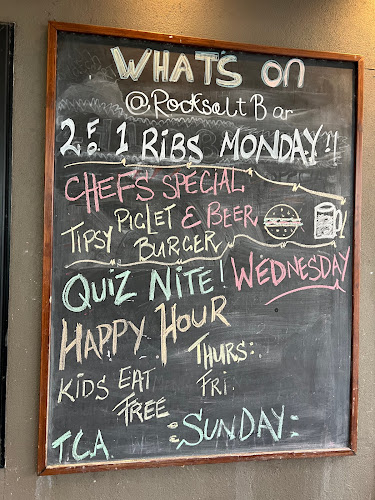 WHAT'S ON
@Rocksalt Bar
2 F. 1 RIBS MONDAY?!
CHEFS SPECIAL
TIPSY PIGLET & BEER
BURGER
QUIZ NITE! WEDNESDAY
HAPPY HOUR THURS:
FRI.
KIDS EAT FREE
:SUNDAY:
T.C.A.